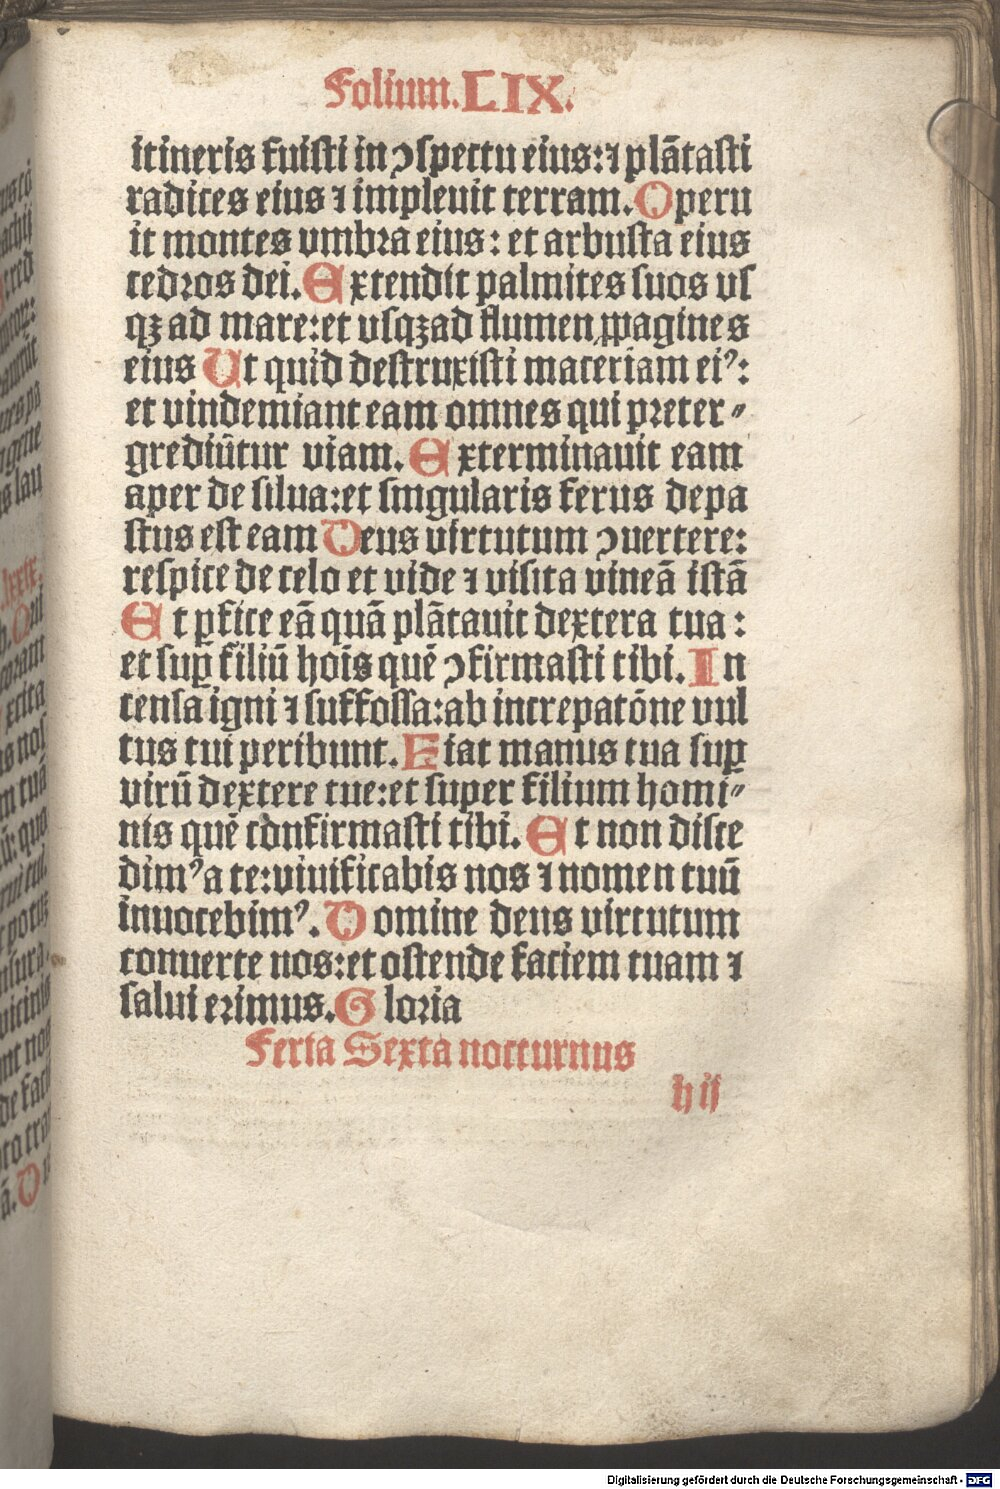 Folium.LIX.
itineris fuisti in ꝯspectu eius:⁊ plātasti
radices eius ⁊ impleuit terram.Operu
it montes vmbra eius: et arbusta eius
cedros dei.Extendit palmites suos vs
qꝫ ad mare:et vsqꝫ ad flumen ꝓpagines
eius Ut quid destruxisti maceriam eiꝰ:
et vindemiant eam omnes qui preter⸗
grediūtur viam.Exterminauit eam
aper de silua:et singularis ferus depa
stus est eam Deus virtutum ꝯuertere:
respice de celo et vide ⁊ visita vineā istā
Et ꝑfice eā quā plātauit dextera tua:
et suꝑ filiū hoīs quē ꝯfirmasti tibi.In
censa igni ⁊ suffossa:ab increpatōne vul
tus tui peribunt.Fiat manus tua suꝑ
virū dextere tue:et super filium homi⸗
nis quē confirmasti tibi.Et non disce
dimꝰ a te:viuificabis nos ⁊ nomen tuū
inuocebimꝰ.Domine deus virtutum
conuerte nos:et ostende faciem tuam ⁊
salui erimus.Gloria
Feria Sexta nocturnus
h ij
Digitalisierung gefördert durch die Deutsche Forschungsgemeinschaft - DFG